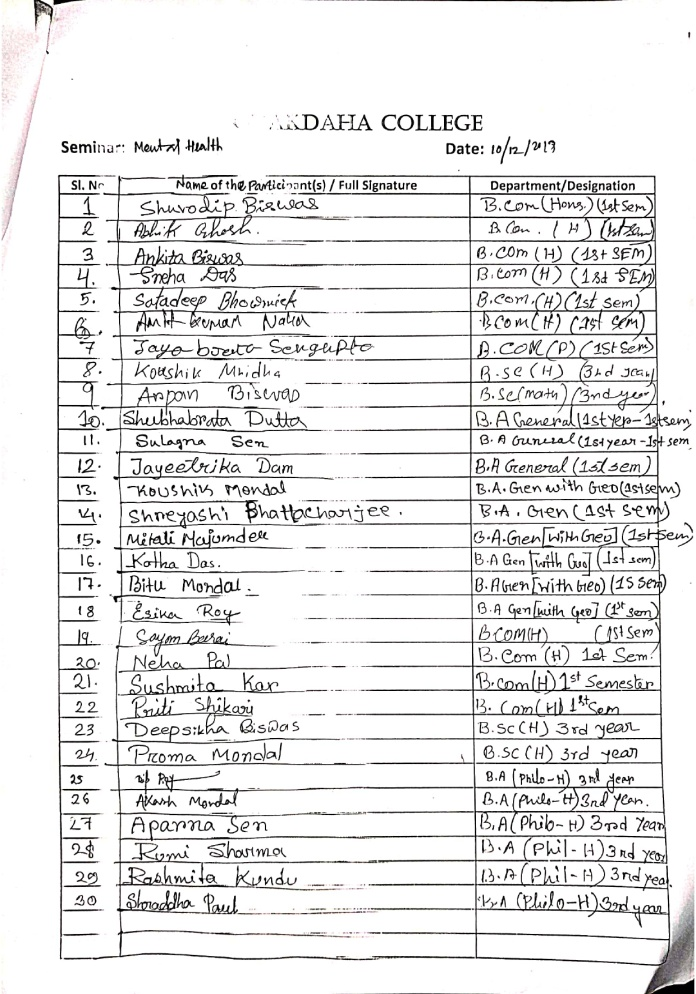 AKDAHA COLLEGE
Seminar: Mental Health Date: 10/12/2019
Sl. No Name of the Participant(s) / Full Signature Department/Designation
1 Shurodip Biswas B.Com (Hons.) (1st Sem)
2 Abhik Ghosh. B.Com. (H) (1st Sem)
3 Ankita Biswas B.COM (H) (1st SEM)
4. Sneha Das B.Com (H) (1st SEM)
5. Satadeep Bhowmick B.Com. (H) (1st sem)
6. Kumar B.Com(H) (1st Sem)
7 Jayabrata Sengupta B.COM(P) (1st Sem)
8. Koushik Mridha B.SC (H) (3rd year)
9 Arpan Biswas B.Sc(math) (3rd year)
10. Shubhabrata Dutta B.A General(1st Yer-1st sem
11. Sulagna Sen B.A General(1st year-1st sem
12. Jayeetrika Dam B.A General (1st sem)
13. Koushik Mondal B.A. Gen with Geo(1st sem)
14. Shreyashi Bhattacharjee. B.A. Gen (1st sem)
15. Mitali Majumder B.A.Gen[With Geo] (1st Sem)
16. Kotha Das. B.A Gen [with Geo] (1st sem)
17. Bitu Mondal. B.A Gen[with Geo) (1S Sem)
18 Esika Roy B.A Gen[with Geo] (1st sem)
19. Sayan B.COM(H) (1st Sem)
20. Neha Pal B.Com (H) 1st Sem.
21. Sushmita Kar B.com(H) 1st Semester
22 Priti Shikari B. Com(H) 1st Sem
23 Deepsikha Biswas B.SC(H) 3rd year
24. Proma Mondal B.SC(H) 3rd year
25 B.A (Philo-H) 3rd year
26 Akash Mondal B.A(Philo-H)3rd year.
27 Aparna Sen B.A(Philo-H) 3rd Year
28 Rumi Sharma B.A (Phil-H) 3rd year
29 Rashmita Kundu B.A (Phil-H) 3rd year.
30 Shraddha Paul B.A (Philo-H)3rd year